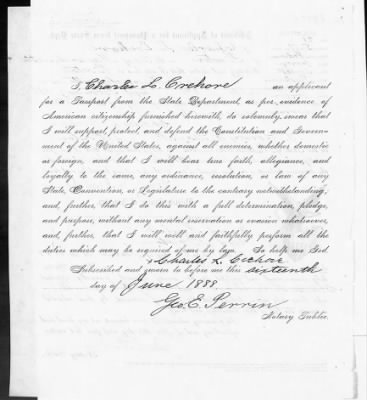 I, Charles L. Crehore an applicant
for a Passport from the State Department, as per evidence of
American citizenship furnished herewith, do solemnly swear that
I will support, protect, and defend the Constitution and Govern-
ment of the United States, against all enemies, whether domestic
or foreign, and that I will bear true faith, allegiance, and
loyalty to the same, any ordinance, resolution, or law of any
State, Convention, or Legislature to the contrary notwithstanding;
and, further, that I do this with a full determination, pledge,
and purpose, without any mental reservation or evasion whatsoever,
and, further, that I will well and faithfully perform all the
duties which may be required of me by law. So help me God.
Charles L. Crehore
Subscribed and sworn to before me this sixteenth
day of June 1888.
Geo. E. Perrin
Notary Public.